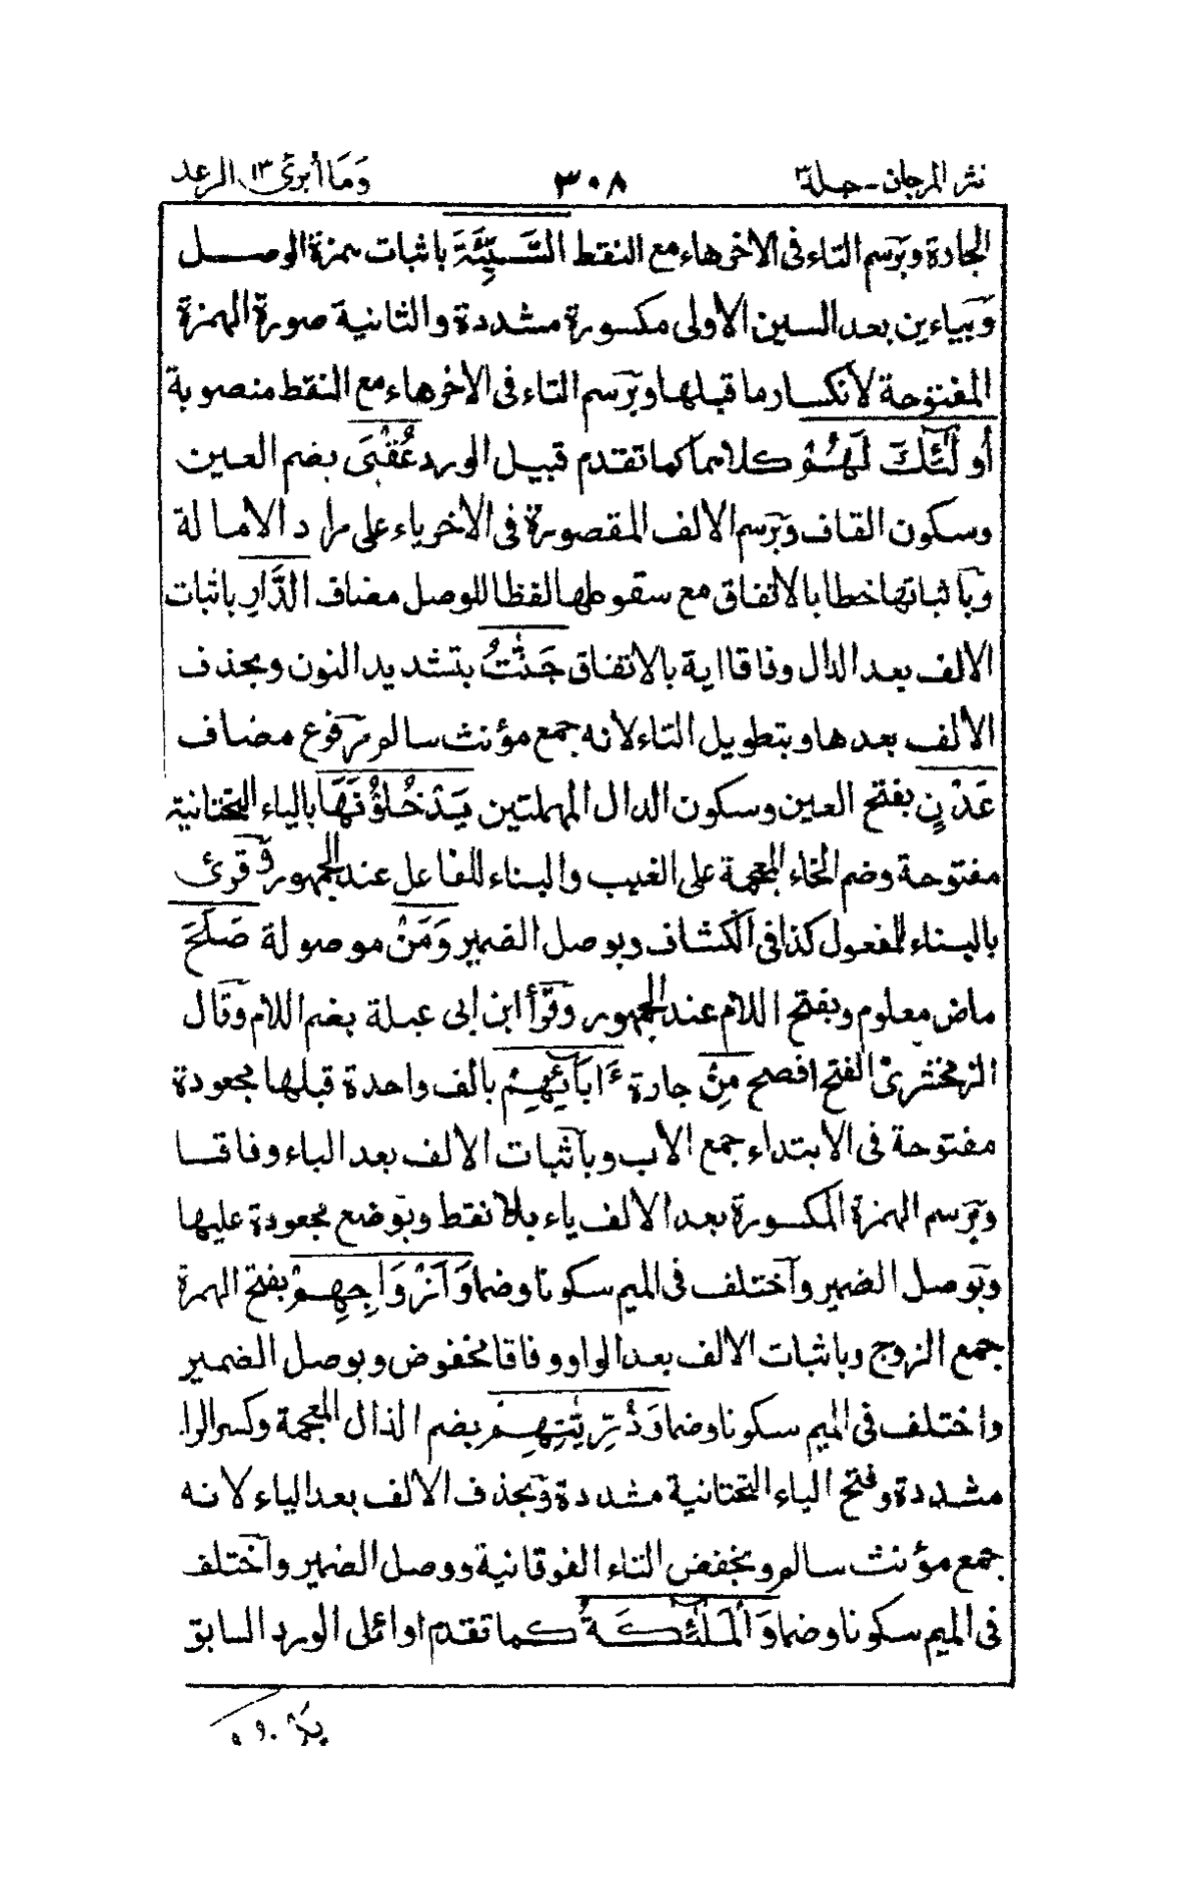 نثر المرجان - جلد ٣ ٣٠٨ وَمَا أُبَرِّئُ ١٣ الرعد
الجارة وبرسم التاء فى الاخر هاء مع النقط السَّيِّئَةَ باثبات همزة الوصل
وبياءين بعد السين الاولى مكسورة مشددة والثانية صورة الهمزة
المفتوحة لانكسار ما قبلها وبرسم التاء فى الاخر هاء مع النقط منصوبة
أُولَٰئِكَ لَهُمْ كلاهما كما تقدم قبيل الورد عُقْبَى بضم العين
وسكون القاف وبرسم الالف المقصورة فى الاخر ياء على مراد الامالة
وباثباتها خطا بالاتفاق مع سقوطها لفظا للوصل مضاف الدَّارِ باثبات
الالف بعد الدال وفاقا اية بالاتفاق جَنّٰتُ بتشديد النون وبحذف
الالف بعدها وبتطويل التاء لانه جمع مؤنث سالم مرفوع مضاف
عَدْنٍ بفتح العين وسكون الدال المهملتين يَدْخُلُوْنَهَا بالياء التحتانية
مفتوحة وضم الخاء المعجمة على الغيب والبناء للفاعل عند الجمهور وقرئ
بالبناء للمفعول كذا فى الكشاف وبوصل الضمير وَمَنْ موصولة صَلَحَ
ماض معلوم وبفتح اللام عند الجمهور وقرأ ابن ابى عبلة بضم اللام وقال
الزمخشرى الفتح افصح مِنْ جارة ءَابَآئِهِمْ بالف واحدة قبلها مجعودة
مفتوحة فى الابتداء جمع الاب وباثبات الالف بعد الباء وفاقا
وبرسم الهمزة المكسورة بعد الالف ياء بلا نقط وبوضع مجعودة عليها
وبوصل الضمير واختلف فى الميم سكونا وضما وَاَزْوَاجِهِمْ بفتح الهمزة
جمع الزوج وباثبات الالف بعد الواو وفاقا مخفوض وبوصل الضمير
واختلف فى الميم سكونا وضما وَذُرِّيّٰتِهِمْ بضم الذال المعجمة وكسر الراء
مشددة وفتح الياء التحتانية مشددة وبحذف الالف بعد الياء لانه
جمع مؤنث سالم وبخفض التاء الفوقانية ووصل الضمير واختلف
فى الميم سكونا وضما وَالْمَلٰٓئِكَةُ كما تقدم اوائل الورد السابق